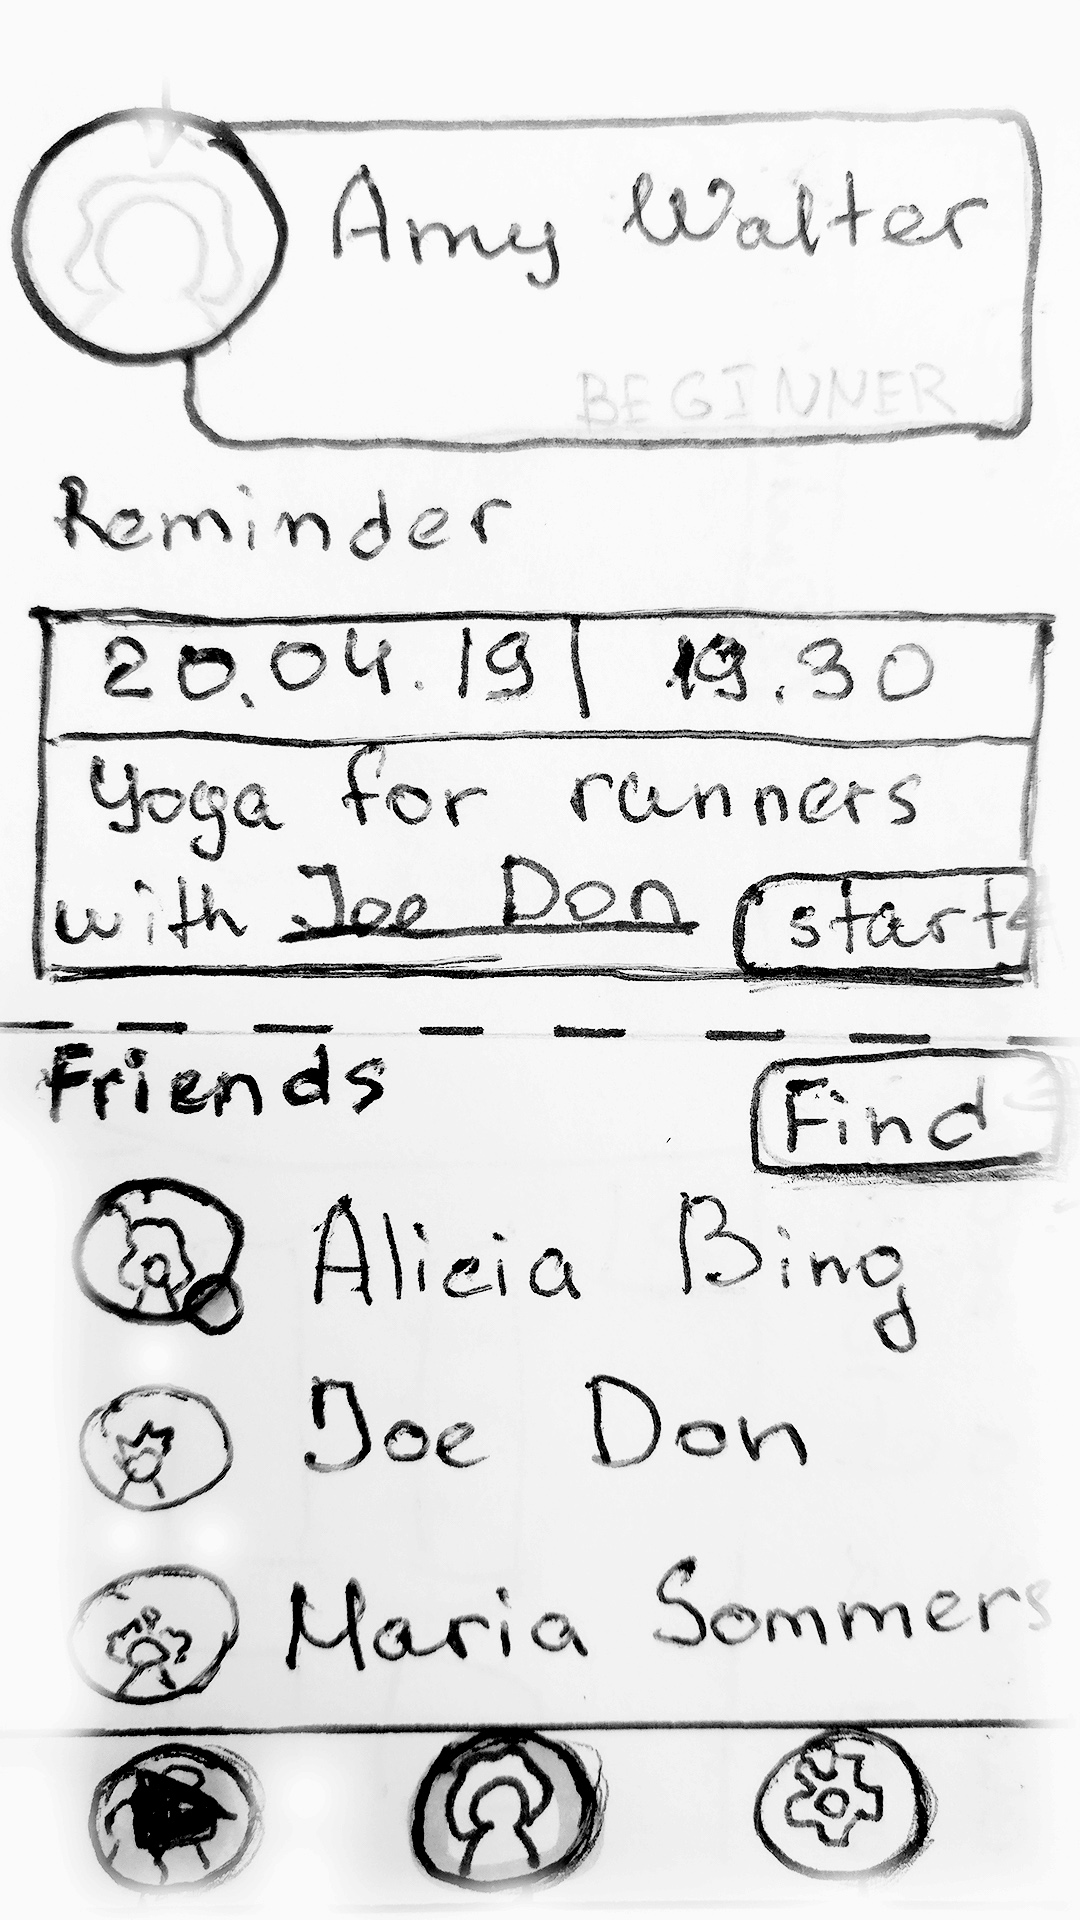 Amy Walter
BEGINNER
Reminder
20.04.19 | 19.30
Yoga for runners
with Joe Don
start
Friends
Find
Alicia Bing
Joe Don
Maria Sommers